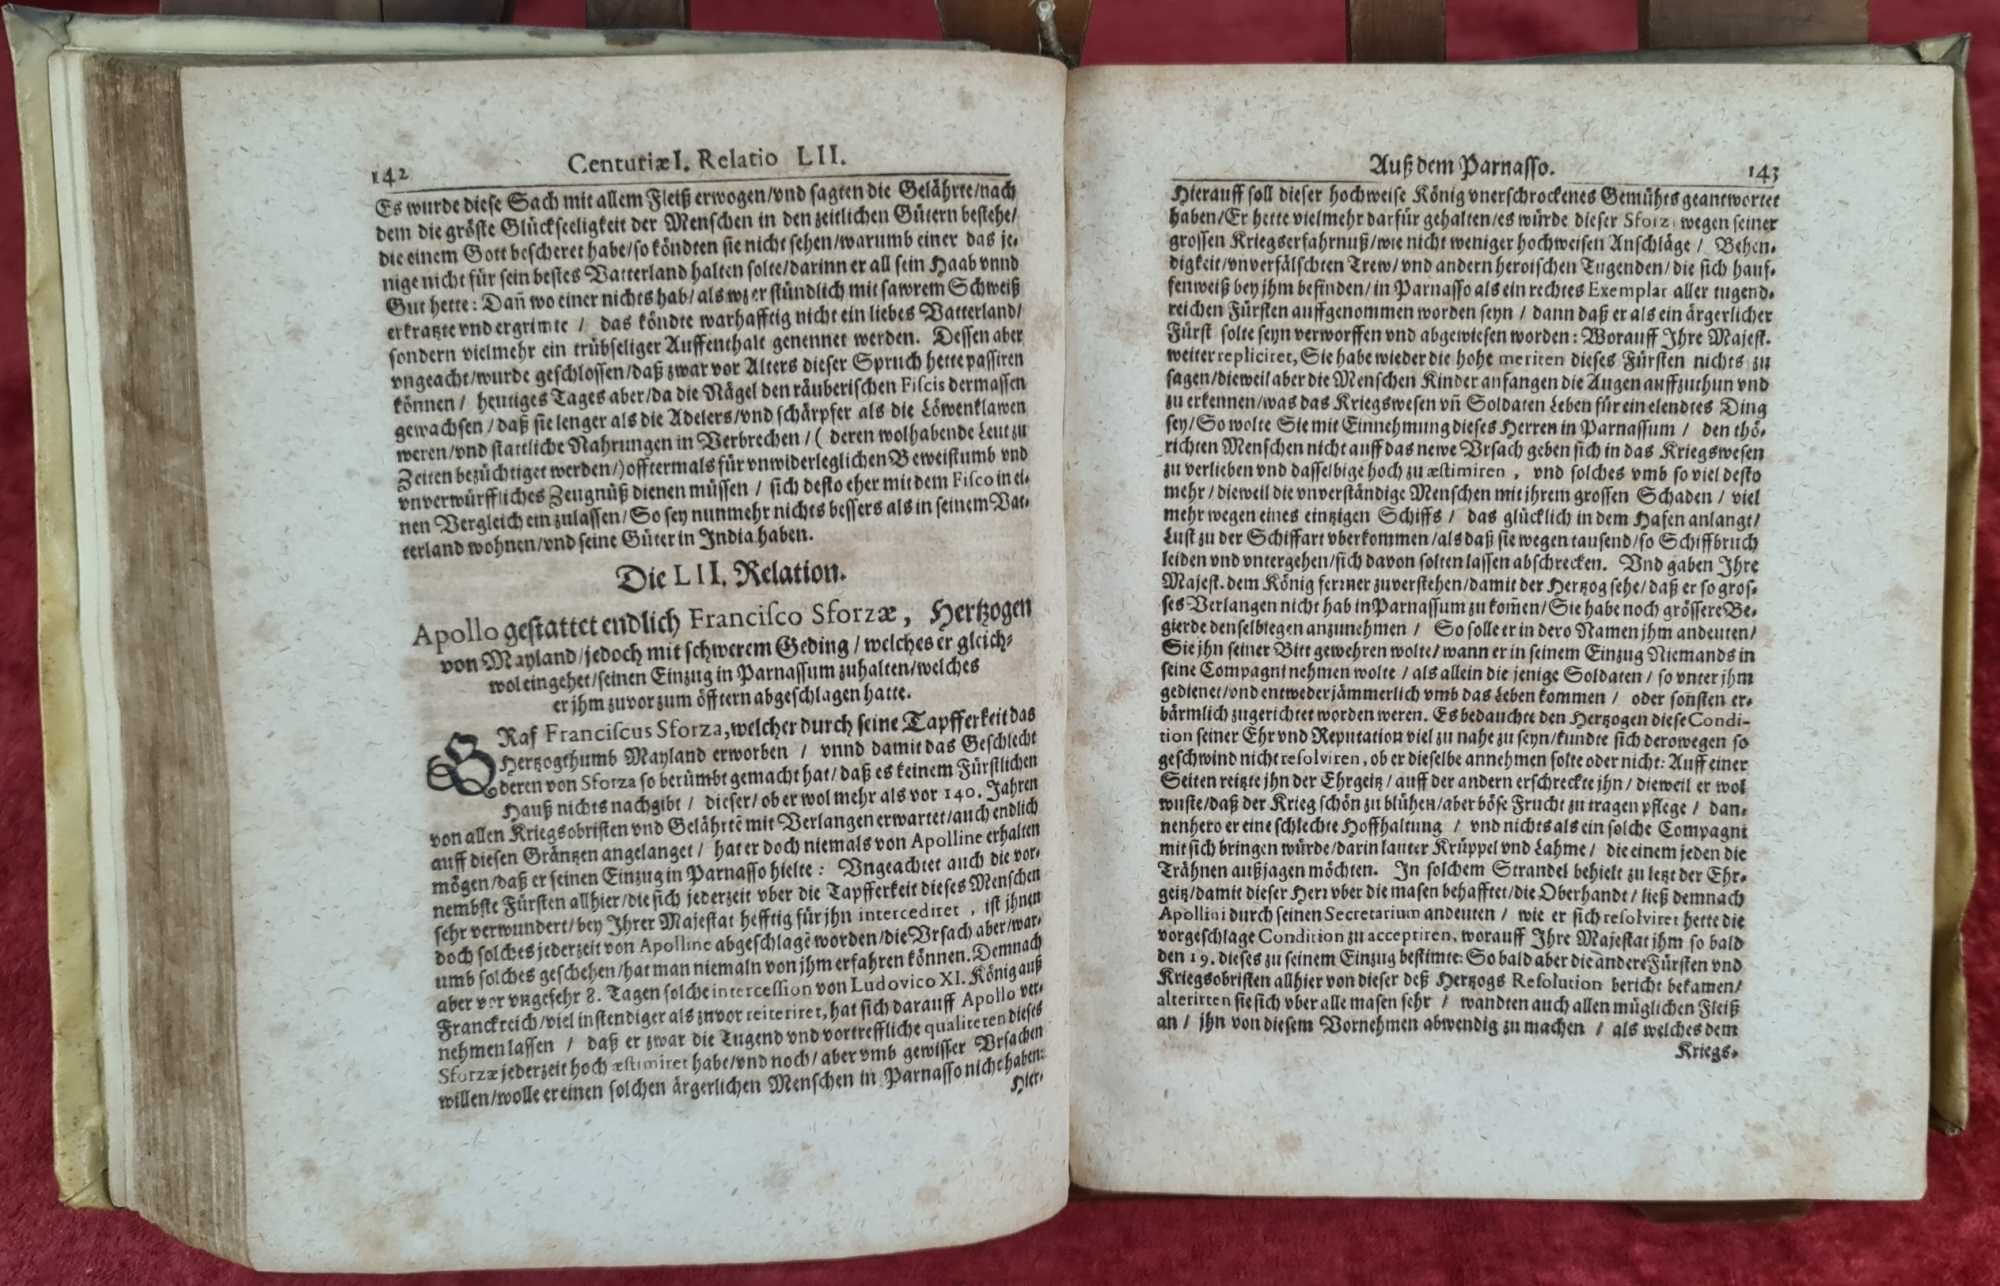 142 Centuriæ I. Relatio LII.
Es wurde diese Sach mit allem Fleiß erwogen/vnd sagten die Gelährte/nach
dem die gröste Glückseeligkeit der Menschen in den zeitlichen Gütern bestehe/
die einem Gott bescheret habe/so köndten sie nicht sehen/warumb einer das je-
nige nicht für sein bestes Vatterland halten solte/darinn er all sein Haab vnnd
Gut hette: Dañ wo einer nichts hab/als wz er stündlich mit sawrem Schweiß
erkratzte vnd ergrimte / das köndte warhafftig nicht ein liebes Vatterland/
sondern vielmehr ein trübseliger Auffenthalt genennet werden. Dessen aber
vngeacht/wurde geschlossen/daß zwar vor Alters dieser Spruch hette passiren
können / heutiges Tages aber/da die Nägel den räuberischen Fiscis dermassen
gewachsen/daß sie lenger als die Adelers/vnd schärpfer als die Löwenklawen
weren/vnd stattliche Nahrungen in Verbrechen/( deren wolhabende Leut zu
Zeiten bezüchtiget werden/)offtermals für vnwiderleglichen Beweistumb vnd
vnverwürffliches Zeugnüß dienen müssen / sich desto eher mit dem Fisco in ei-
nen Vergleich einzulassen/So sey nunmehr nichts bessers als in seinem Vat-
terland wohnen/vnd seine Güter in India haben.
Die LII. Relation.
Apollo gestattet endlich Francisco Sforzæ, Hertzogen
von Mayland/jedoch mit schwerem Geding/welches er gleich-
wol eingehet/seinen Einzug in Parnassum zuhalten/welches
er jhm zuvor zum öfftern abgeschlagen hatte.
GRaf Franciscus Sforza,welcher durch seine Tapfferkeit das
Hertzogthumb Mayland erworben / vnnd damit das Geschlecht
deren von Sforza so berümbt gemacht hat/daß es keinem Fürstlichen
Hauß nichts nachgibt / dieser/ob er wol mehr als vor 140. Jahren
von allen Kriegsobristen vnd Gelährtē mit Verlangen erwartet/auch endlich
auff diesen Gräntzen angelanget / hat er doch niemals von Apolline erhalten
mögen/daß er seinen Einzug in Parnasso hielte: Vngeachtet auch die vor-
nembste Fürsten allhier/die sich jederzeit vber die Tapfferkeit dieses Menschen
sehr verwundert/bey Ihrer Majestat hefftig für jhn intercediret, ist jhnen
doch solches jederzeit von Apolline abgeschlagē worden/die Vrsach aber/war-
umb solches geschehen/hat man niemaln von jhm erfahren können. Demnach
aber vor vngefehr 8. Tagen solche intercession von Ludovico XI. König auß
Franckreich/viel instendiger als zuvor reiteriret, hat sich darauff Apollo ver-
nehmen lassen / daß er zwar die Tugend vnd vortreffliche qualiteten dieses
Sforzæ jederzeit hoch æstimiret habe/vnd noch/aber vmb gewisser Vrsachen
willen/wolle er einen solchen ärgerlichen Menschen in Parnasso nicht haben:
Hier-
Auß dem Parnasso. 143
Hierauff soll dieser hochweise König vnerschrockenes Gemühts geantwortet
haben/Er hette vielmehr darfür gehalten/es würde dieser Sforz wegen seiner
grossen Kriegserfahrnuß/wie nicht weniger hochweisen Anschläge / Behen-
digkeit/vnverfälschten Trew/vnd andern heroischen Tugenden/die sich hauf-
fenweiß bey jhm befinden/in Parnasso als ein rechtes Exemplar aller tugend-
reichen Fürsten auffgenommen worden seyn / dann daß er als ein ärgerlicher
Fürst solte seyn verworffen vnd abgewiesen worden: Worauff Ihre Majest.
weiter repliciret, Sie habe wieder die hohe meriten dieses Fürsten nichts zu
sagen/dieweil aber die Menschen Kinder anfangen die Augen auffzuthun vnd
zu erkennen/was das Kriegswesen vñ Soldaten Leben für ein elendtes Ding
sey/So wolte Sie mit Einnehmung dieses Herren in Parnassum / den thö-
richten Menschen nicht auff das newe Vrsach geben sich in das Kriegswesen
zu verlieben vnd dasselbige hoch zu æstimiren, vnd solches vmb so viel desto
mehr/dieweil die vnverständige Menschen mit jhrem grossen Schaden / viel
mehr wegen eines eintzigen Schiffs / das glücklich in dem Hafen anlangt/
Lust zu der Schiffart vberkommen/als daß sie wegen tausend/so Schiffbruch
leiden vnd vntergehen/sich davon solten lassen abschrecken. Vnd gaben Ihre
Majest. dem König ferrner zuverstehen/damit der Hertzog sehe/daß er so gros-
ses Verlangen nicht hab in Parnassum zu kom̃en/Sie habe noch grössere Be-
gierde denselbiegen anzunehmen / So solle er in dero Namen jhm andeuten/
Sie jhn seiner Bitt gewehren wolte/wann er in seinem Einzug Niemands in
seine Compagni nehmen wolte / als allein die jenige Soldaten / so vnter jhm
gedienet/vnd entweder jämmerlich vmb das Leben kommen / oder sonsten er-
bärmlich zugerichtet worden weren. Es bedauchte den Hertzogen diese Condi-
tion seiner Ehr vnd Reputation viel zu nahe zu seyn/kundte sich derowegen so
geschwind nicht resolviren, ob er dieselbe annehmen solte oder nicht: Auff einer
Seiten reitzte jhn der Ehrgeitz/ auff der andern erschreckte jhn / dieweil er wol
wuste/daß der Krieg schön zu blühen/aber böse Frucht zu tragen pflege / dan-
nenhero er eine schlechte Hoffhaltung / vnd nichts als ein solche Compagni
mit sich bringen würde/darin lauter Krüppel vnd Lahme / die einem jeden die
Trähnen außjagen möchten. In solchem Strandel behielt zu letzt der Ehr-
geitz/damit dieser Herr vber die masen behafftet/die Oberhandt / ließ demnach
Apollini durch seinen Secretarium andeuten / wie er sich resolviret hette die
vorgeschlage Condition zu acceptiren, worauff Ihre Majestat jhm so bald
den 19. dieses zu seinem Einzug bestimte: So bald aber die andere Fürsten vnd
Kriegsobristen allhier von dieser deß Hertzogs Resolution bericht bekamen/
alterirten sie sich vber alle masen sehr / wandten auch allen müglichen Fleiß
an / jhn von diesem Vornehmen abwendig zu machen / als welches dem
Kriegs-